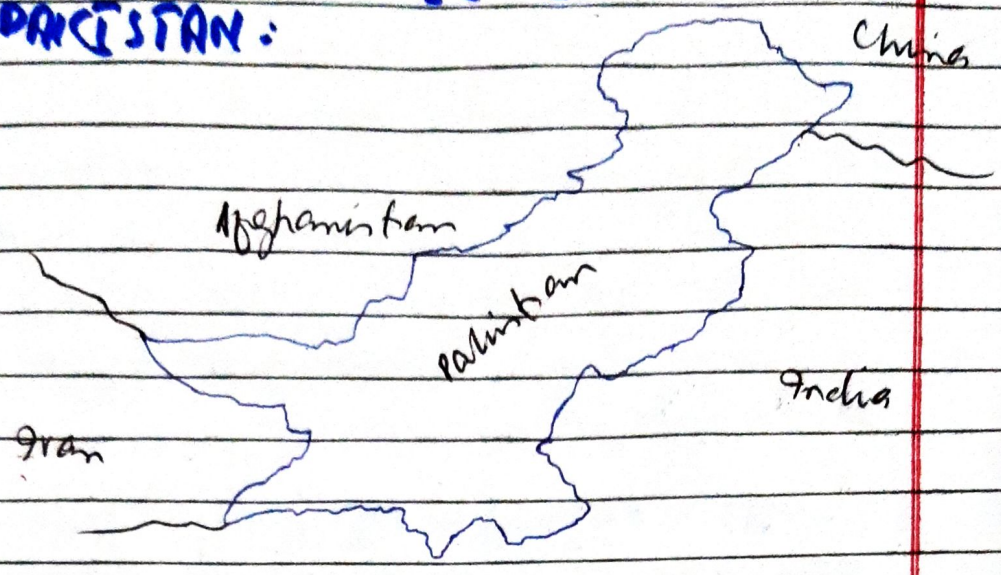 PAKISTAN:
China
Afghanistan
Pakistan
India
Iran